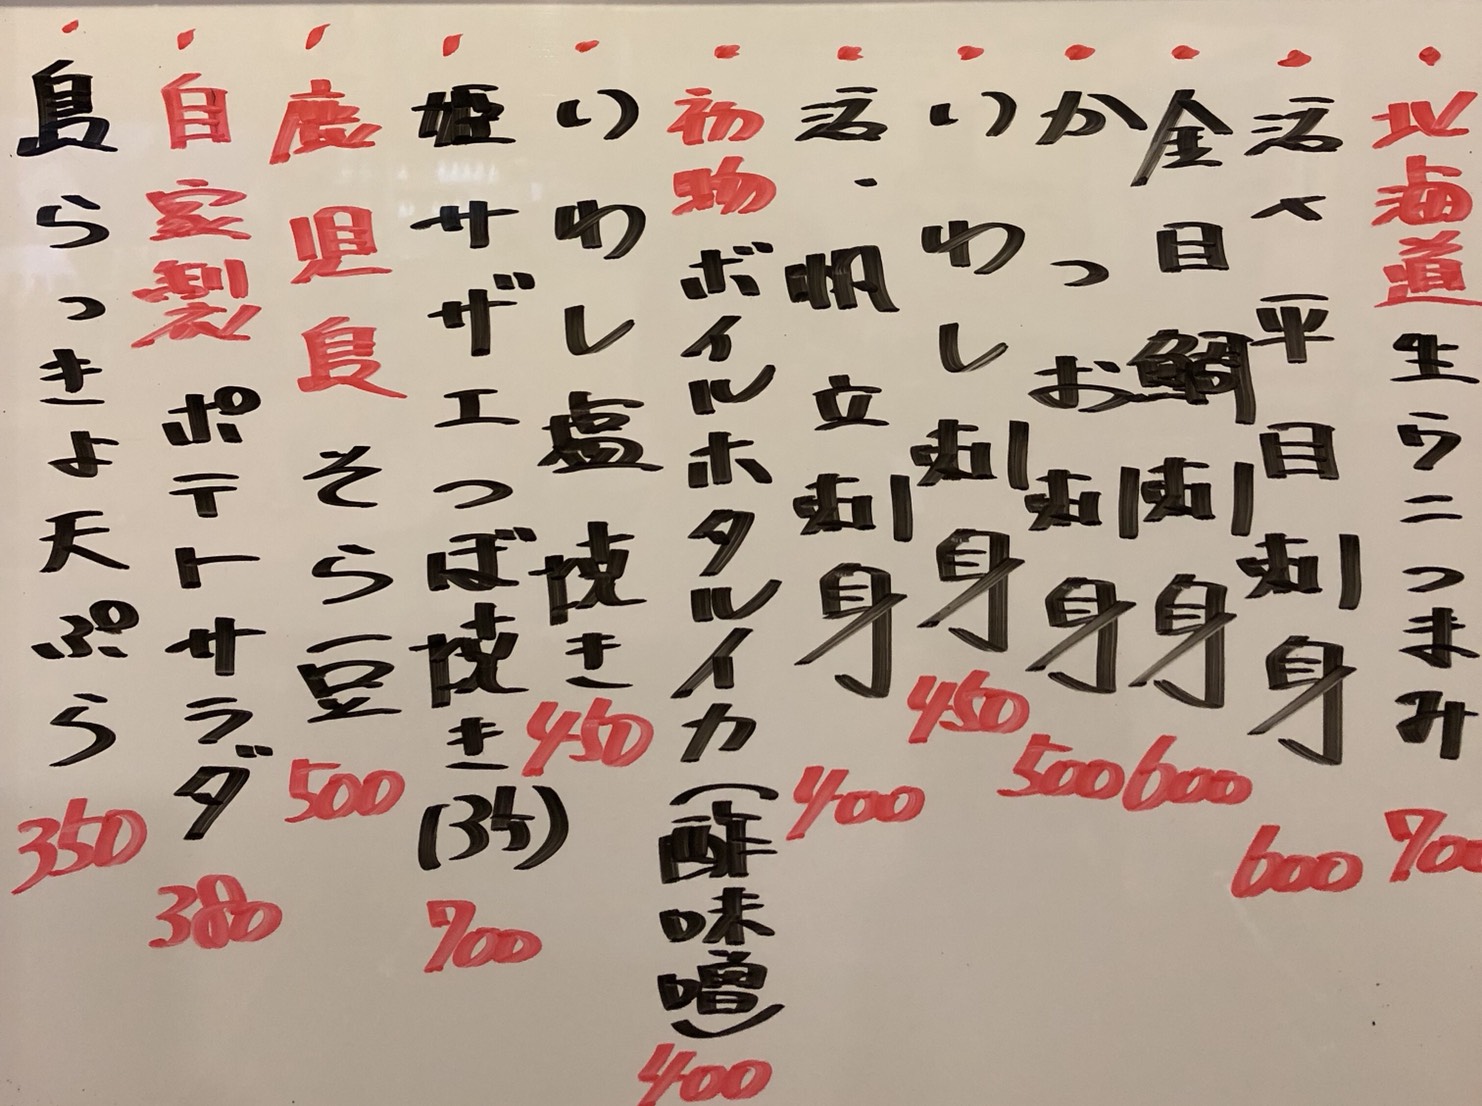 ・北海道生ウニつまみ 700
・活〆平目刺身 600
・金目鯛刺身 600
・かつお刺身 500
・いわし刺身 450
・活・帆立刺身 400
・初物ボイルホタルイカ(酢味噌) 400
・いわし塩焼き 450
・姫サザエつぼ焼き(3ケ) 700
・鹿児島そら豆 500
・自家製ポテトサラダ 380
・島らっきょ天ぷら 350